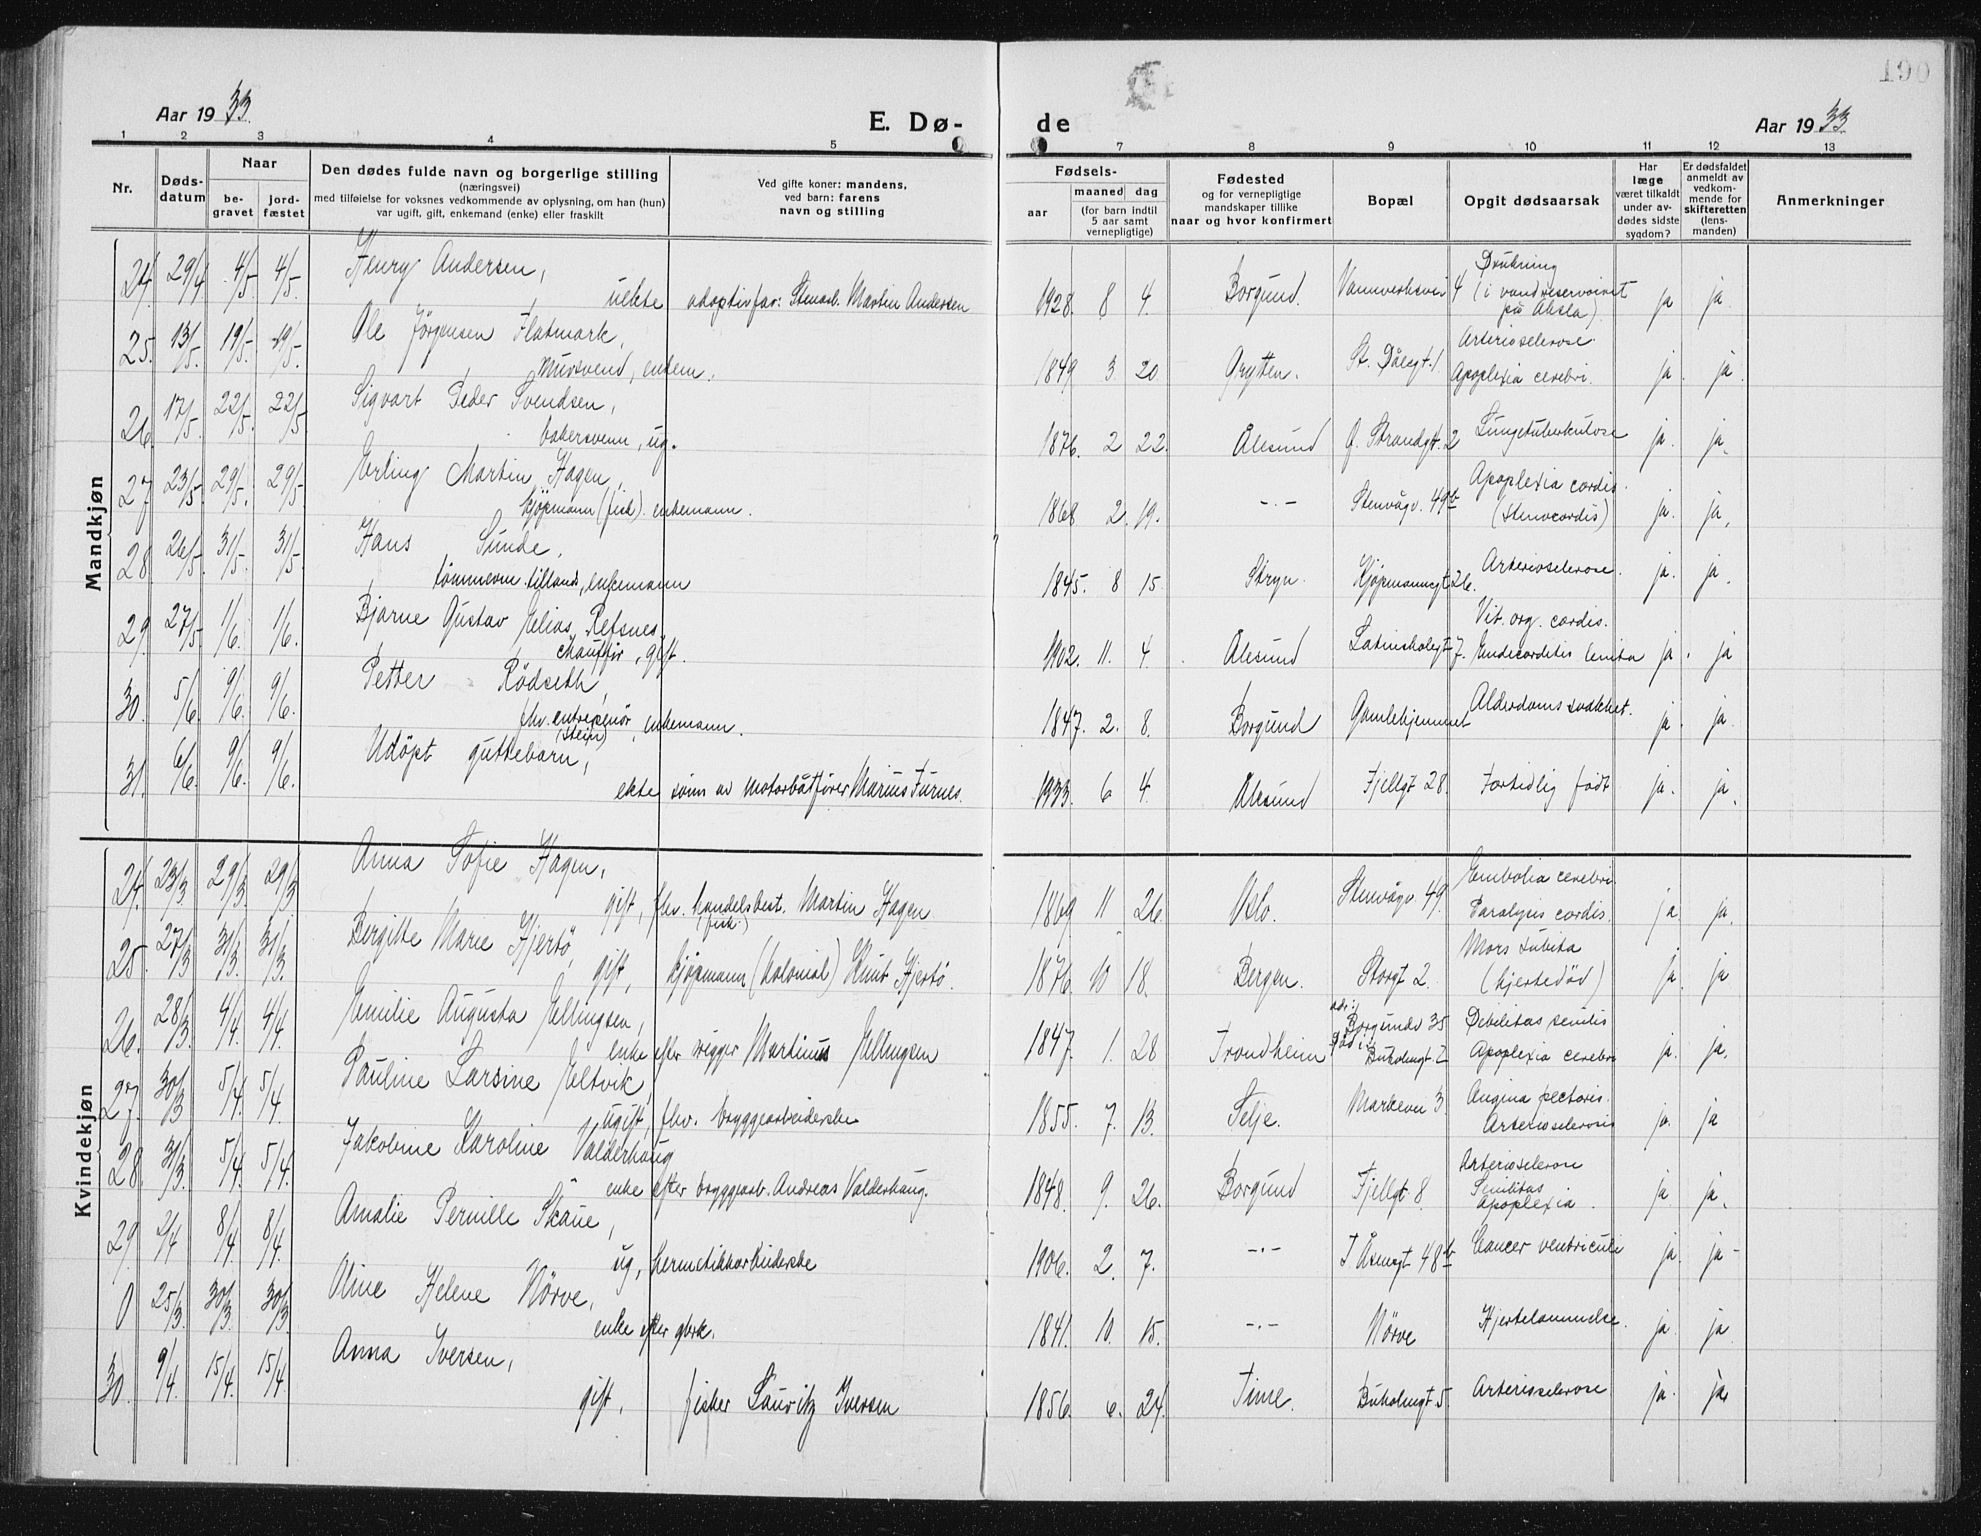 190
Aar 1933.
E. Dø-
de
Aar 1933.
1 2 3 4 5 7 8 9 10 11 12 13
Nr.
Døds-
datum
Naar
be-
gravet
jord-
fæstet
Den dødes fulde navn og borgerlige stilling
(næringsvei)
med tilføielse for voksnes vedkommende av oplysning, om han (hun)
var ugift, gift, enkemand (enke) eller fraskilt
Ved gifte koner: mandens,
ved barn: farens
navn og stilling
Fødsels-
aar
maaned
dag
(for barn indtil
5 aar samt
vernepligtige)
Fødested
og for vernepligtige
mandskaper tillike
naar og hvor konfirmert
Bopæl
Opgit dødsaarsak
Har
læge
været tilkaldt
under av-
dødes sidste
sygdom?
Er dødsfaldet
anmeldt av
vedkom-
mende for
skifteretten
(lens-
manden)
Anmerkninger
Mandkjøn
24. 29/4 4/5. 4/5. Henry Andersen,
uekte adoptivfar: Stenarb. Martin Andersen 1928. 8 4. Borgund. Vannverksvei 4 Drukning
(i vandreservoiret
på Aksla) ja ja
25. 13/5. 19/5. 19/5. Ole Jørgensen Flatmark,
Mursvend, enkem. 1849 3. 20 Grytten. St. Olavsgt. 1 Arteriosclerose
Apoplexia cerebri. ja. ja.
26. 17/5. 22/5. 22/5. Sigvart Peder Svendsen,
bakersvenn, ug. 1876. 2 22. Ålesund Ø. Strandgt. 2 Lungetuberkulose ja. ja.
27 23/5. 29/5. 29/5. Erling Martin Hagen,
kjøpmann (fisk). enkemann. 1868 2. 19. -"- Stenvågv. 49b Apoplexia cordis.
(Stenocordis) ja. ja,
28. 26/5. 31/5. 31/5. Hans Sunde,
tømmerm. tilland, enkemann 1845. 8 15. Stryn. Kjøpmannsgt 26. Arteriosclerose. ja. ja.
29. 27/5 1/6. 1/6. Bjarne Gustav Elias Refsnes
chauffør, gift. 1902. 11. 4. Ålesund Latinskolegt 7. Vit. org. cordis.
Endocarditis lenta ja. ja
30. 5/6. 9/6. 9/6. Petter Rödseth,
fhv. entreprenør, enkemann.
(Stein) 1847. 2. 8. Borgund Gamlehjemmet Alderdomssvakhet. ja. ja.
31. 6/6. 9/6. 9/6. Udöpt guttebarn,
ekte sønn av Motorbåtfører Marius Furnes. 1933. 6 4. Ålesund Fjellgt 28. Fortidlig født ja. ja.
Kvindekjøn
24. 23/3 29/3 29/3 Anna Sofie Hagen,
gift, fhv. handelsbest. Martin Hagen
(fisk.) 1869 11 26 Oslo. Stenvågv. 49. Embolia cerebri.
Paralysis cordis. ja. ja.
25. 27/3 31/3. 31/3. Bergitte Marie Hjertö,
gift, kjøpmann (kolonial) Knut Hjertö. 1876. 10 18. Bergen. Storgt 2. Mors subita
(hjertedöd) ja. ja
26. 28/3. 4/4. 4/4. Emilie Augusta Ellingsen,
enke efter rigger Martinus Ellingsen 1847. 1. 28 Trondheim Borgundv 35
Buholmgt. 2 Debilitas senilis
Apoplexia cerebri ja. ja.
27. 30/3 5/4. 5/4. Pauline Larsine Eltvik,
ugift, fhv. bryggearbeiderske 1855. 7. 13. Selje. Markevn 3. Angina pectoris.
Arteriosclerosis ja. ja
28 31/3. 5/4. 5/4. Jakobine Karoline Valderhaug
enke efter bryggearb. Andreas Valderhaug. 1848. 9. 26. Borgund Fjellgt. 8. Arteriosclerose
Senilitas
Apoplexia. ja ja.
29. 2/4 8/4. 8/4. Amalie Pernille Skåue,
ug, hermetikkarbeiderske 1906. 2. 7. -"- I. Åsensgt 48b Cancer ventriculi ja. ja-
0 25/3. 30/3. 30/3. Oline Helene Nörve,
enke efter gbrk. 1841. 10. 15. -"- Nörve Hjertelammelse. ja. ja
30. 9/4. 15/4. 15/4. Anna Iversen,
gift, fisker Lauritz Iversen 1856. 6. 24. Time. Buholmgt 5. Arteriosclerose ja. ja,